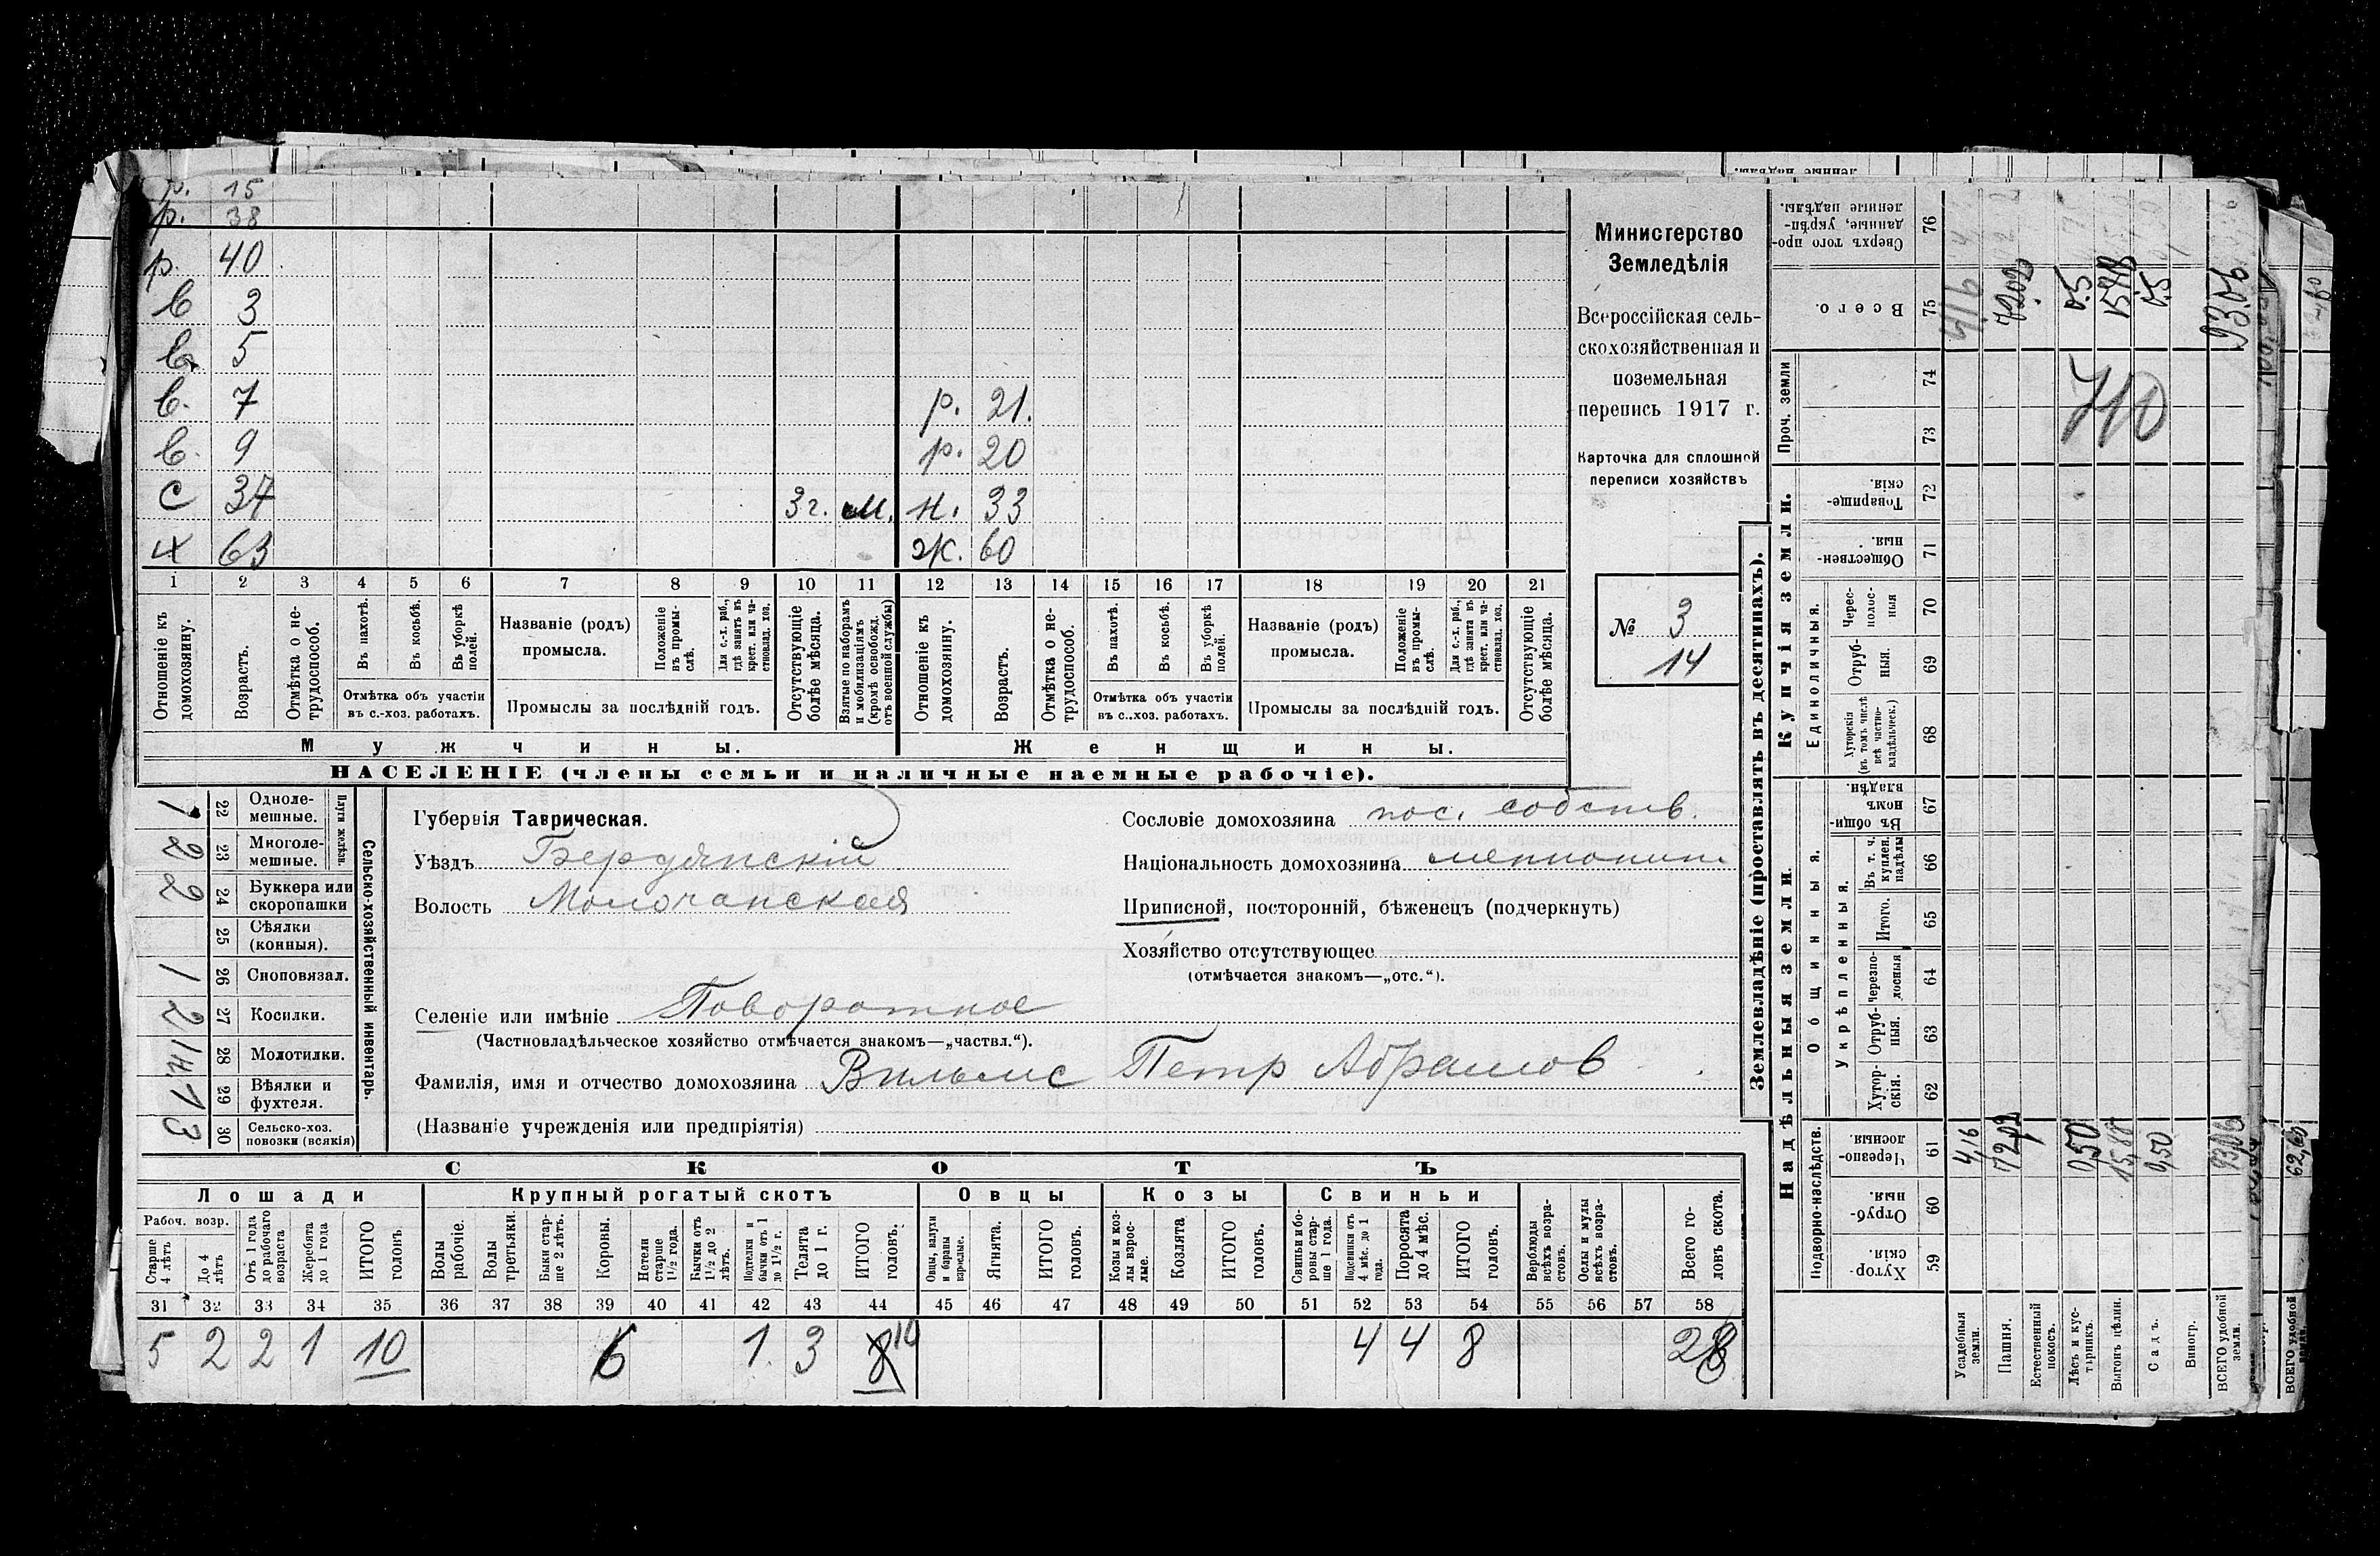 р. 15
р. 38
р. 40
в 3
в. 5
в. 7 р. 21.
в. 9 р. 20
с 37 3 г. м. н. 33
х 63 ж. 60
1 2 3 4 5 6 7 8 9 10 11 12 13 14 15 16 17 18 19 20 21
Отношеніе къ домохозяину.
Возрастъ.
Отмѣтка о нетрудоспособ.
Въ пахотѣ.
Въ косьбѣ.
Въ уборкѣ полей.
Отмѣтка объ участіи
въ с.-хоз. работахъ.
Названіе (родъ)
промысла.
Положеніе въ промыслѣ.
Для с.-х. раб., гдѣ занятъ въ крест. или частновлад. хоз.
Промыслы за послѣдній годъ.
Отсутствующіе болѣе мѣсяца.
Взятые по наборамъ и мобилизаціямъ (кромѣ освобожд. отъ военной службы)
Отношеніе къ домохозяину.
Возрастъ.
Отмѣтка о нетрудоспособ.
Въ пахотѣ.
Въ косьбѣ.
Въ уборкѣ полей.
Отмѣтка объ участіи
въ с.-хоз. работахъ.
Названіе (родъ)
промысла.
Положеніе въ промыслѣ.
Для с.-х. раб., гдѣ занята въ крест. или частновлад. хоз.
Промыслы за послѣдній годъ.
Отсутствующіе болѣе мѣсяца.
Мужчины.
Женщины.
НАСЕЛЕНІЕ (члены семьи и наличные наемные рабочіе).
Министерство
Земледѣлія
Всероссійская сель-
скохозяйственная и
поземельная
перепись 1917 г.
Карточка для сплошной
переписи хозяйствъ
№ 3
14
1 22 Одноле-
мешные.
2 23 Многоле-
мешные.
Плуги желѣзн.
2 24 Буккера или
скоропашки
25 Сѣялки
(конныя).
1 26 Сноповязал.
2 27 Косилки.
28 Молотилки.
1 29 Вѣялки и
фухтеля.
3 30 Сельско-хоз.
повозки (всякія)
Сельско-хозяйственный инвентарь.
Губернія Таврическая.
Уѣздъ Бердянскій
Волость Молочанская
Селеніе или имѣніе Поворотное
(Частновладѣльческое хозяйство отмѣчается знакомъ—„частвл.“).
Фамилія, имя и отчество домохозяина Вильмс Петр Абрамов
(Названіе учрежденія или предпріятія)
Сословіе домохозяина пос. собств.
Національность домохозяина меннонит
Приписной, посторонній, бѣженецъ (подчеркнуть)
Хозяйство отсутствующее
(отмѣчается знакомъ—„отс.“).
СКОТЪ
Лошади
Крупный рогатый скотъ
Овцы
Козы
Свиньи
Рабоч. возр.
Старше 4 лѣтъ
До 4 лѣтъ
Отъ 1 года до рабочаго возраста
Жеребята до 1 года
ИТОГО головъ
Волы рабочіе.
Волы третьяки.
Быки старше 2 лѣтъ.
Коровы.
Нетели старше 1 1/2 года.
Бычки отъ 1 1/2 до 2 лѣтъ.
Подтелки и бычки отъ 1 до 1 1/2 г.
Телята до 1 г.
ИТОГО головъ.
Овцы, валухи и бараны взрослые.
Ягнята.
ИТОГО головъ.
Козы и козлы взрослые.
Козлята
ИТОГО головъ.
Свиньи и боровы старше 1 года.
Подсвинки отъ 4 мѣс. до 1 года.
Поросята до 4 мѣс.
ИТОГО головъ.
Верблюды всѣхъ возрастовъ.
Ослы и мулы всѣхъ возрастовъ.
Всего головъ скота.
31 32 33 34 35 36 37 38 39 40 41 42 43 44 45 46 47 48 49 50 51 52 53 54 55 56 57 58
5 2 2 1 10 6 1. 3 8 10 4 4 8 28
Землевладѣніе (проставлять въ десятинахъ).
Надѣльныя земли.
Купчія земли.
Проч. земли
Подворно-наслѣдств.
Общинныя.
Укрѣпленныя.
Единоличныя.
59 Хуторскія.
60 Отрубныя.
61 Черезполосныя.
62 Хуторскія.
63 Отрубныя.
64 Черезполосныя
65 Итого.
66 Въ т. ч. куплен. надѣлы
67 Въ общинномъ владѣн.
68 Хуторскія (въ томъ числѣ всѣ частновладѣльческ.)
69 Отрубныя.
70 Черезполосныя
71 Общественныя.
72 Товарищескія.
73
74
75 Всего.
76 Сверхъ того проданные, укрѣпленные надѣлы.
Усадебныя земли. 4,16 4,16
Пашня. 72,02 72,02
Естественный покосъ.
Лѣсъ и кустарникъ. 0,50 0,50
Выгонъ цѣлин. 15,88 15,88
Садъ. 0,50 0,50
Виногр.
ВСЕГО удобной земли. 93,06 93,06
710
ВСЕГО удобной 62,60